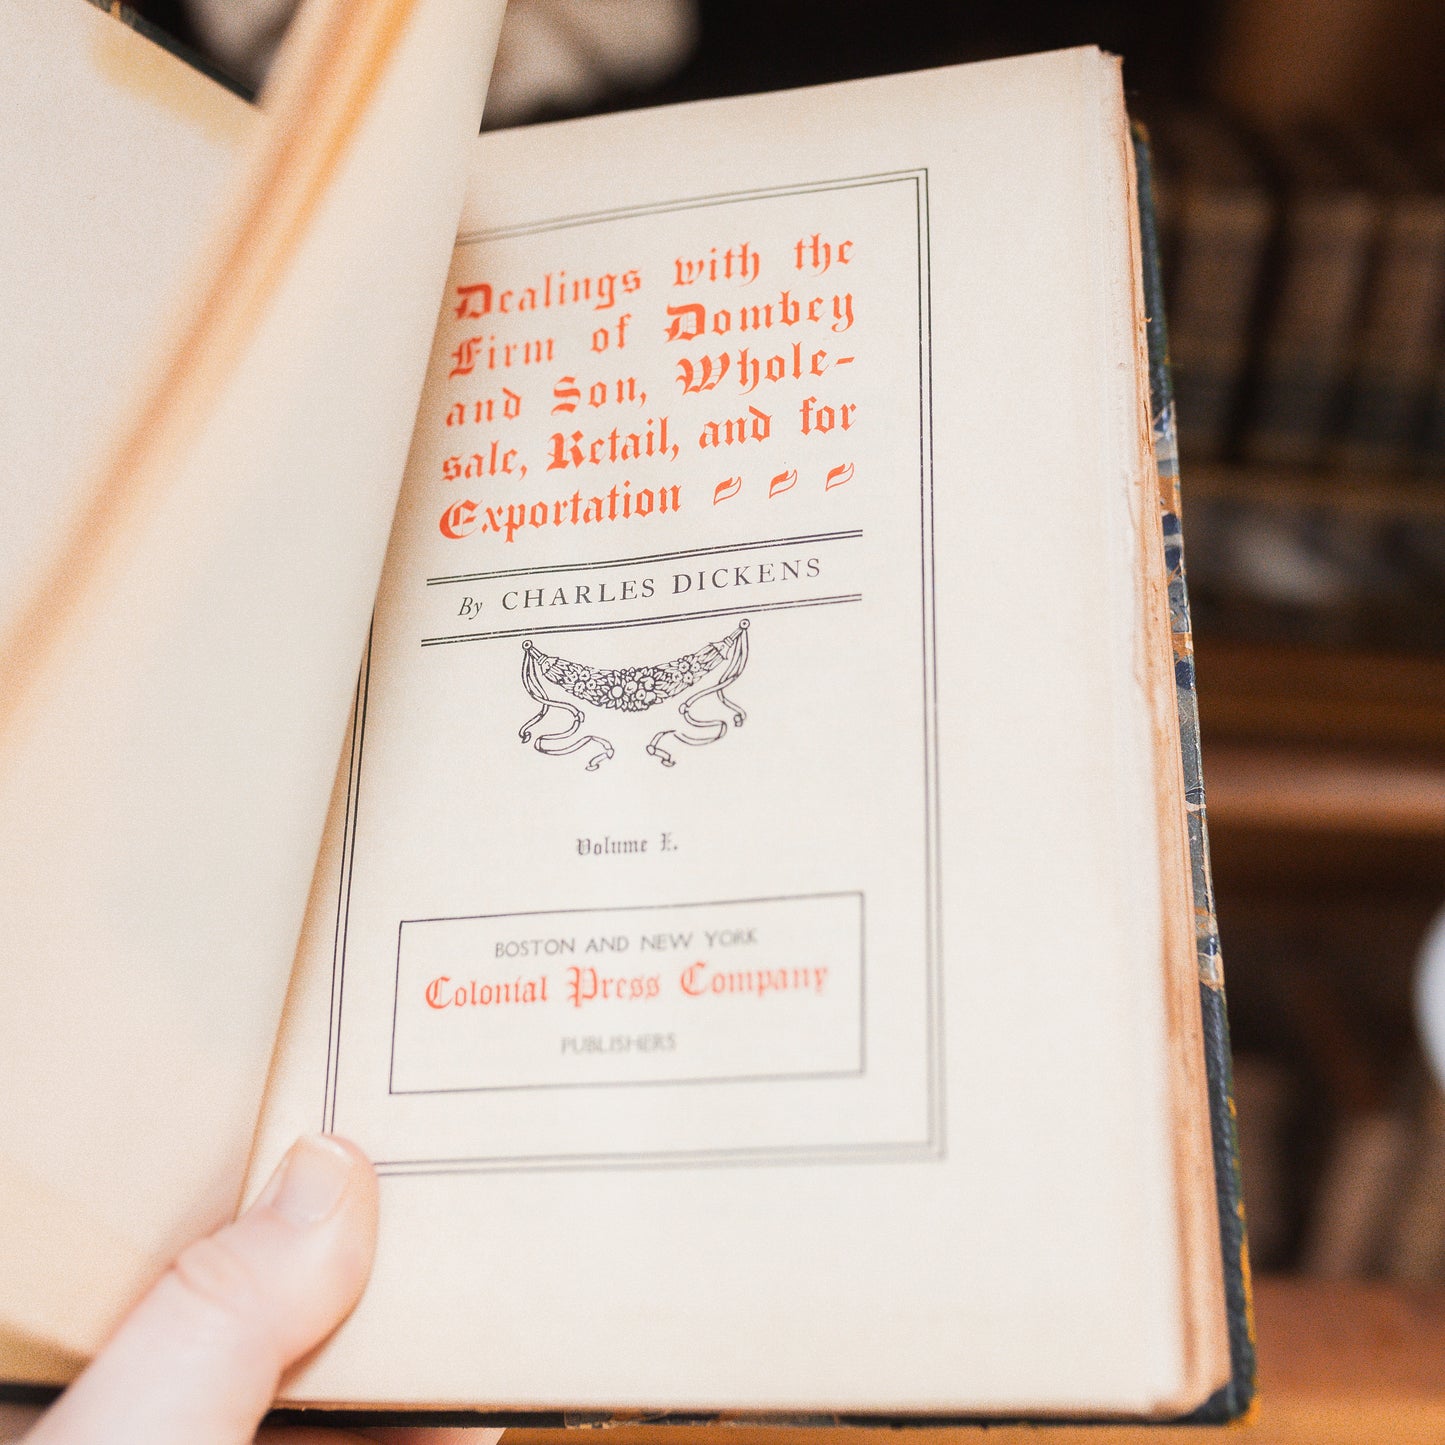 Dealings with the
Firm of Dombey
and Son, Whole-
sale, Retail, and for
Exportation
By CHARLES DICKENS
Volume I.
BOSTON AND NEW YORK
Colonial Press Company
PUBLISHERS